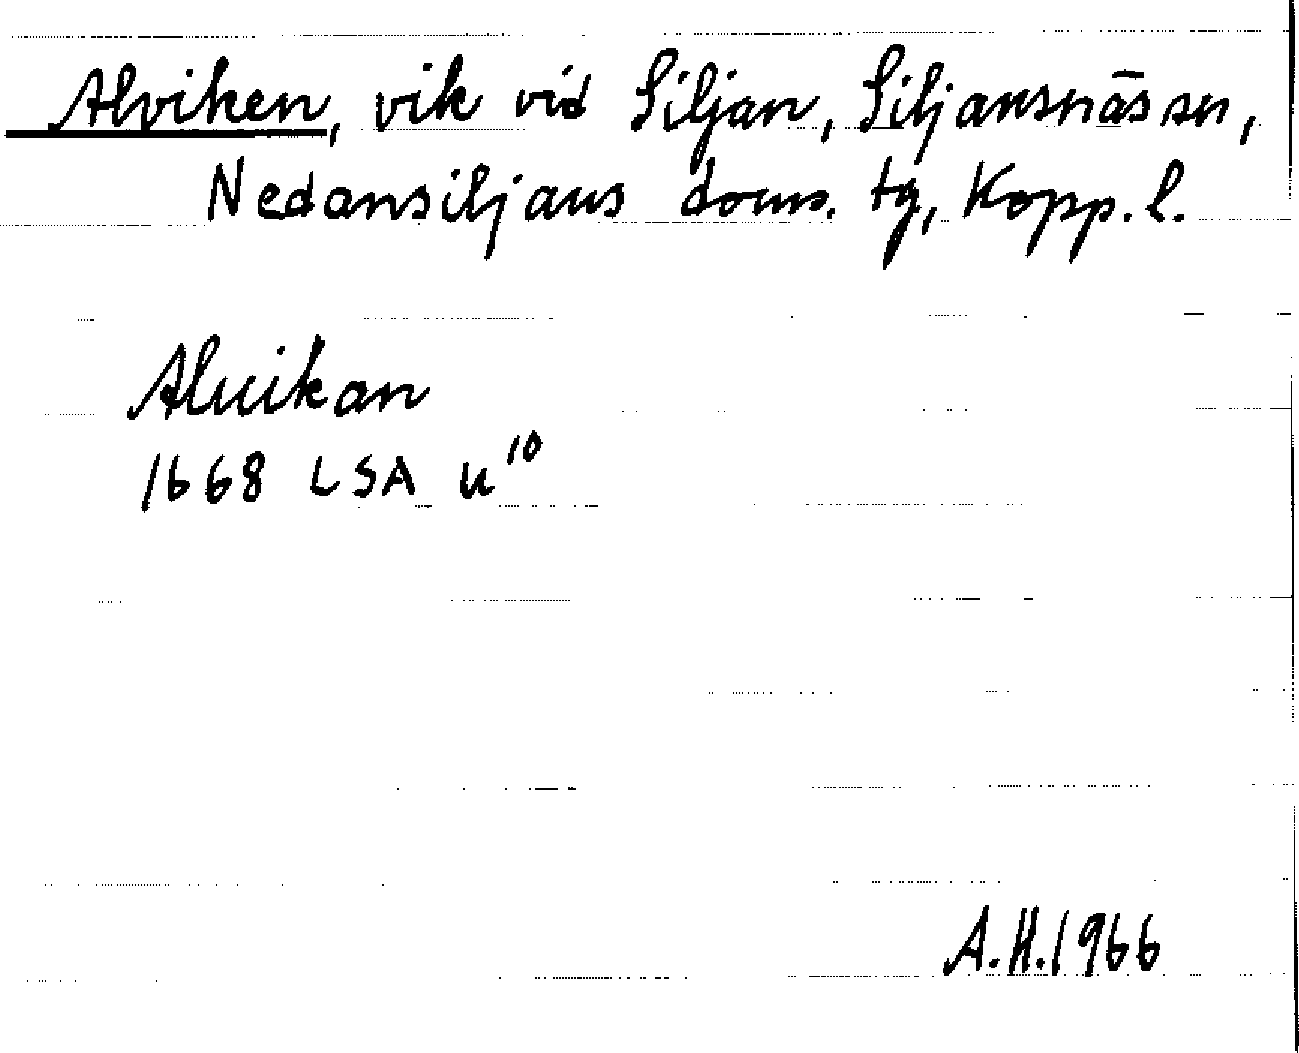 Alviken, vik vid Siljan, Siljansnäs sn,
Nedansiljans doms. tg, Kopp. l.
Aluikan
1668 LSA u¹⁰
A.H. 1966